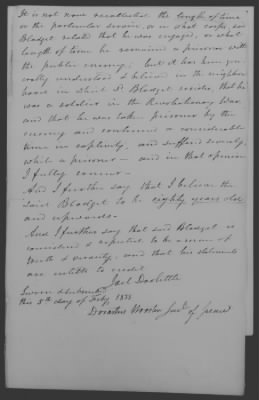 It is not now recollected the length of time
or the particular service, or in what corps, sd
Blodget stated that he was engaged, or what
length of time he remained a prisoner with
the public enemy; but it has been gen
erally understood & believed in the neighbor
hood in which Sd Blodget resides, that he
was a soldier in the Revolutionary War
and that he was taken prisoner by the
enemy and confined a considerable
time in captivity, and suffered severely,
while a prisoner — and in that opinion
I fully concur —
And I further say that I believe the
said Blodget to be eighty years old
and upwards —
And I further say that said Blodget is
considered & reputed to be a man of
truth & veracity, and that his statements
are entitled to credit
Joel Doolittle
Sworn & subscribed
this 5th day of Feby 1833
Dorastus Wooster Just. of Peace